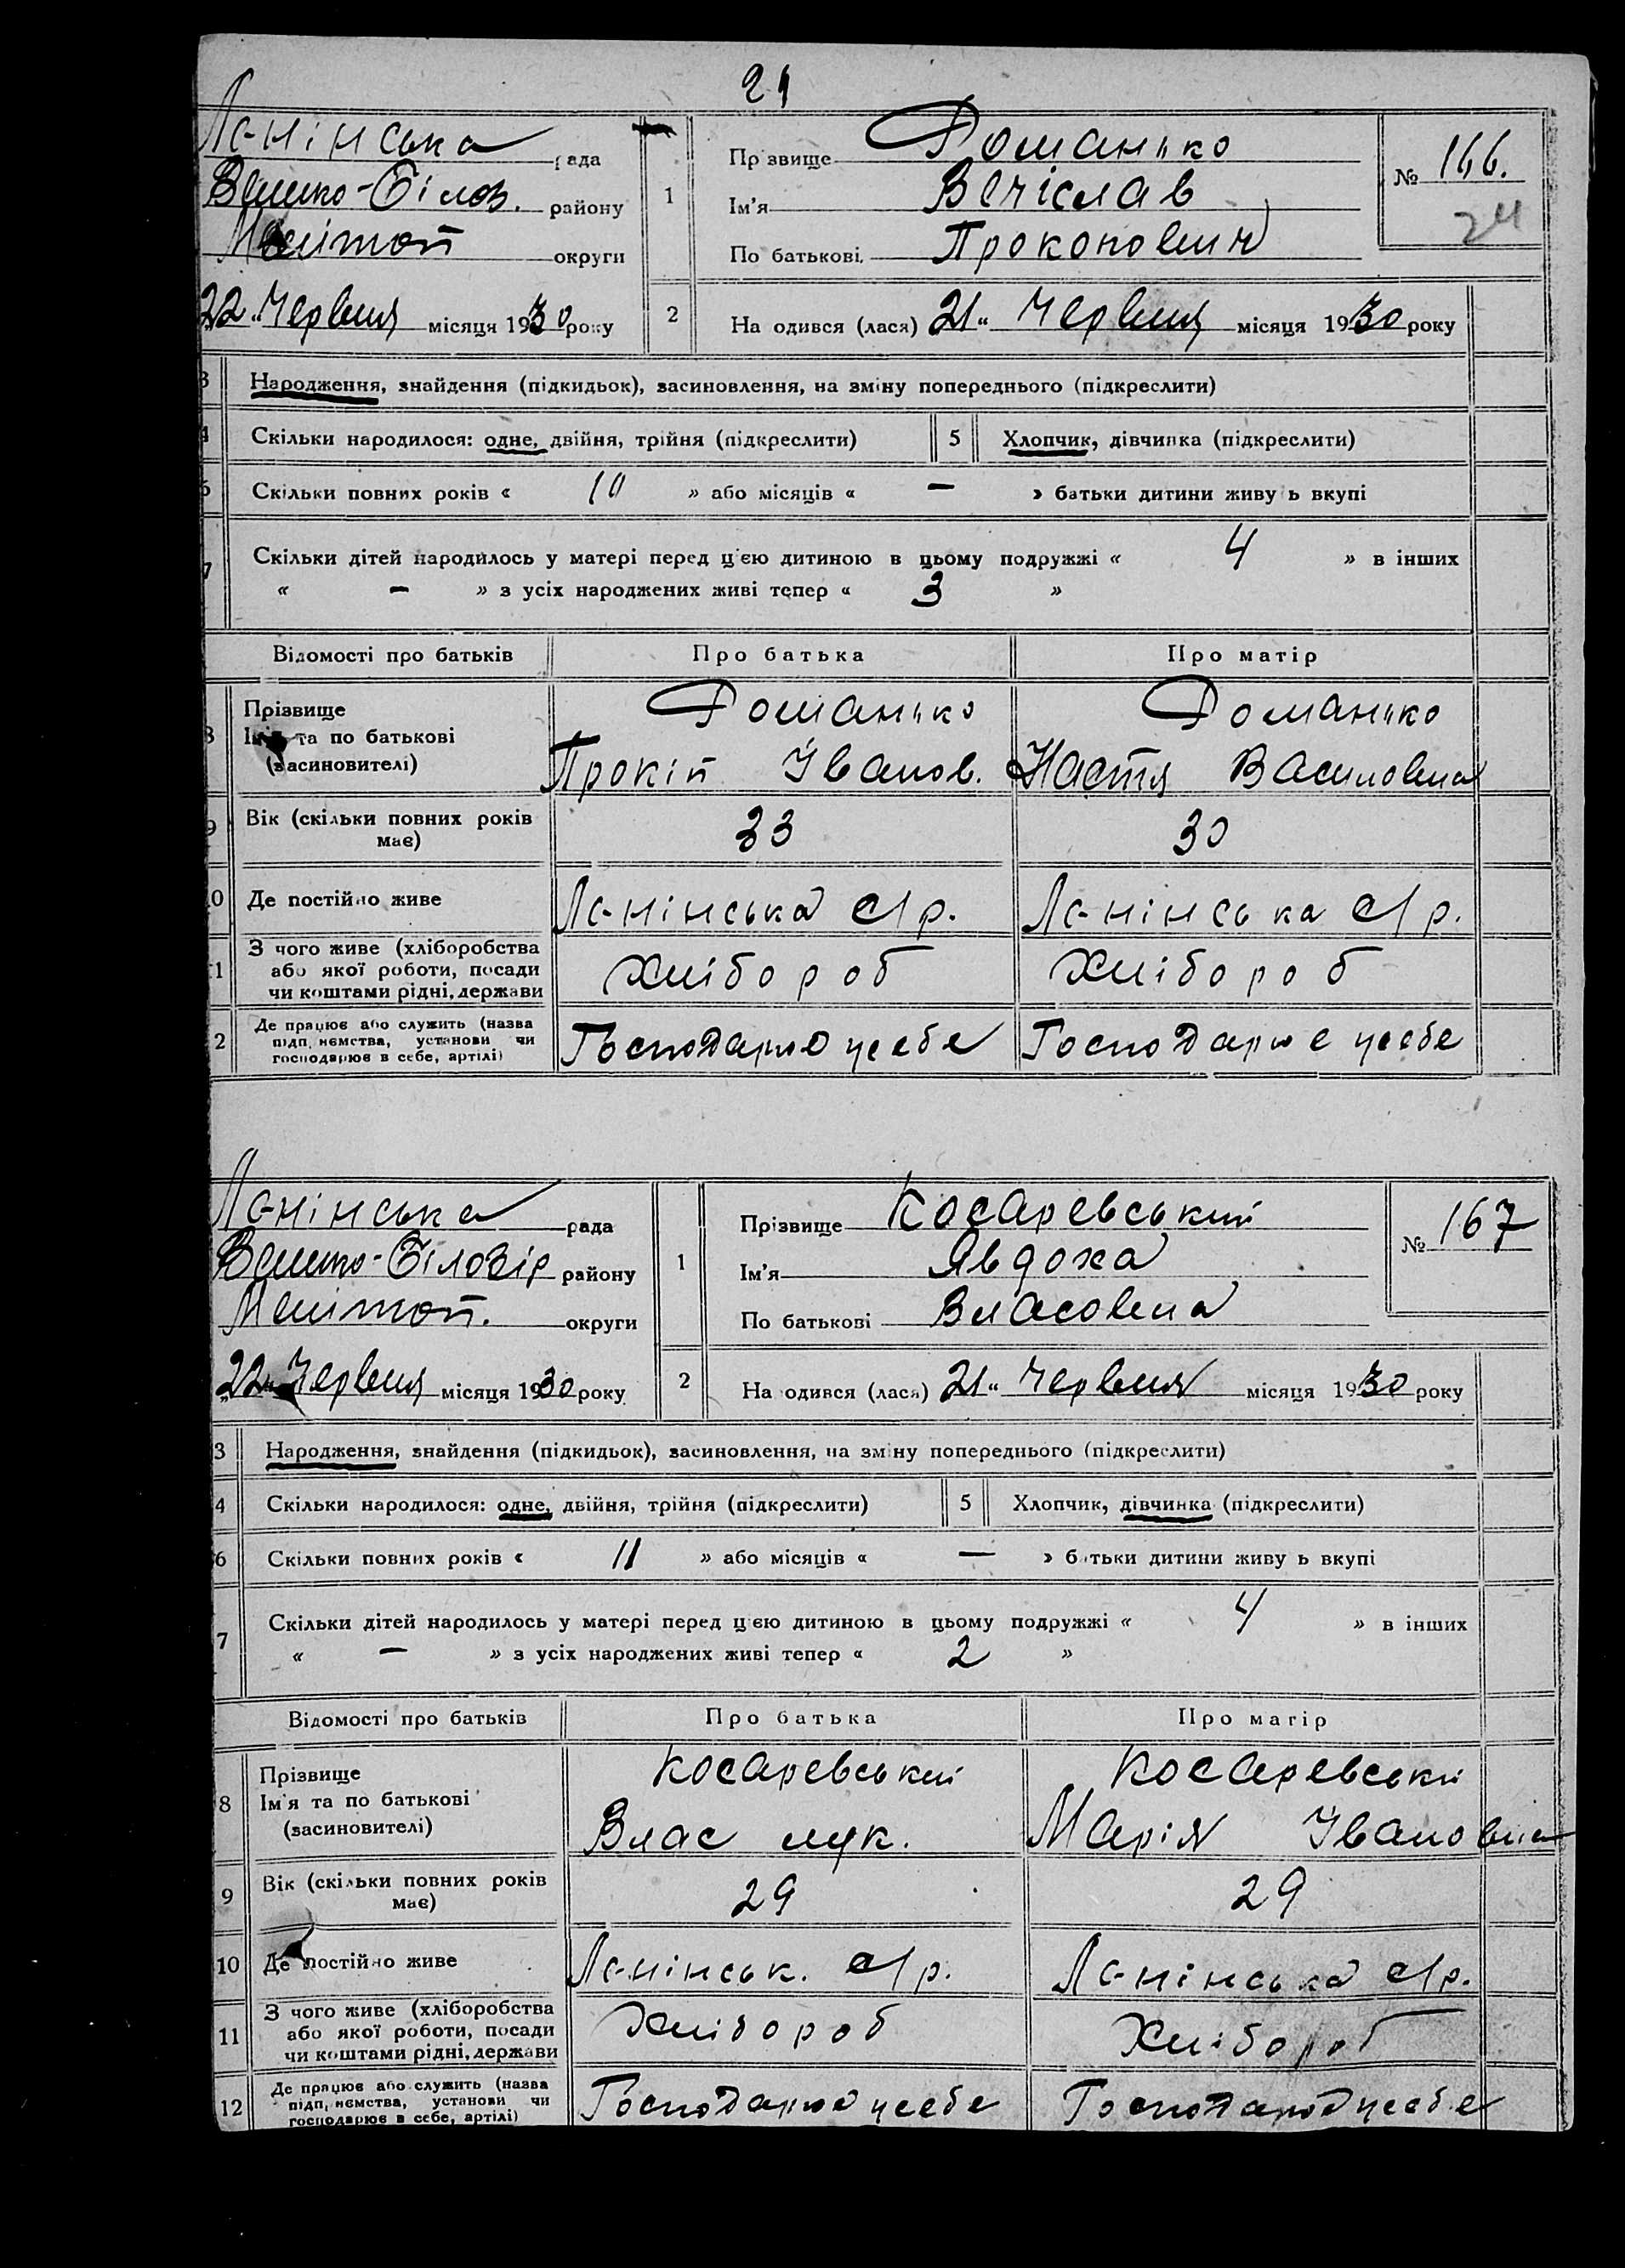 21
Ленінська рада
Велико-Білоз. району
Меліт оп округи
22 Червня місяця 1930 року
1
Прізвище Романько
Ім'я Вечіслав
По батькові Прокопович
№ 166.
24
2
На одився (лася) 21 " Червня місяця 1930 року
3 Народження, знайдення (підкидьок), засиновлення, на зміну попереднього (підкреслити)
4 Скільки народилося: одне, двійня, трійня (підкреслити) 5 Хлопчик, дівчинка (підкреслити)
6 Скільки повних років « 10 » або місяців « — » батьки дитини живу ь вкупі
7 Скільки дітей народилось у матері перед цією дитиною в цьому подружжі « 4 » в інших
« — » з усіх народжених живі тепер « 3 »
Відомості про батьків Про батька Про матір
8 Прізвище Романько Романько
Ім'я та по батькові Прокіп Іванов. Настя Василовна
(засиновителі)
9 Вік (скільки повних років 33 30
має)
10 Де постійно живе Ленінська с/р. Ленінська с/р.
11 З чого живе (хліборобства
або якої роботи, посади Хлібороб Хлібороб
чи коштами рідні, держави
12 Де працює або служить (назва
підп, ємства, установи чи Господарює усебе Господарює усебе
господарює в себе, артілі)
Ленінська рада
Велико-Білозір району
Меліт оп. округи
22 Червня місяця 1930 року
1
Прізвище Косаревський
Ім'я Явдоха
По батькові Власовна
№ 167
2
На одився (лася) 21 " Червня місяця 1930 року
3 Народження, знайдення (підкидьок), засиновлення, на зміну попереднього (підкреслити)
4 Скільки народилося: одне, двійня, трійня (підкреслити) 5 Хлопчик, дівчинка (підкреслити)
6 Скільки повних років « 11 » або місяців « — » батьки дитини живу ь вкупі
7 Скільки дітей народилось у матері перед цією дитиною в цьому подружжі « 4 » в інших
« — » з усіх народжених живі тепер « 2 »
Відомості про батьків Про батька Про матір
8 Прізвище Косаревський Косаревськи
Ім'я та по батькові Влас лук. Марія Івановна
(засиновителі)
9 Вік (скільки повних років 29 29
має)
10 Де постійно живе Ленінськ. с/р. Ленінська с/р.
11 З чого живе (хліборобства
або якої роботи, посади Хлібороб Хлібороб
чи коштами рідні, держави
12 Де працює або служить (назва
підп, ємства, установи чи Господарює усебе Господарює усебе
господарює в себе, артілі)